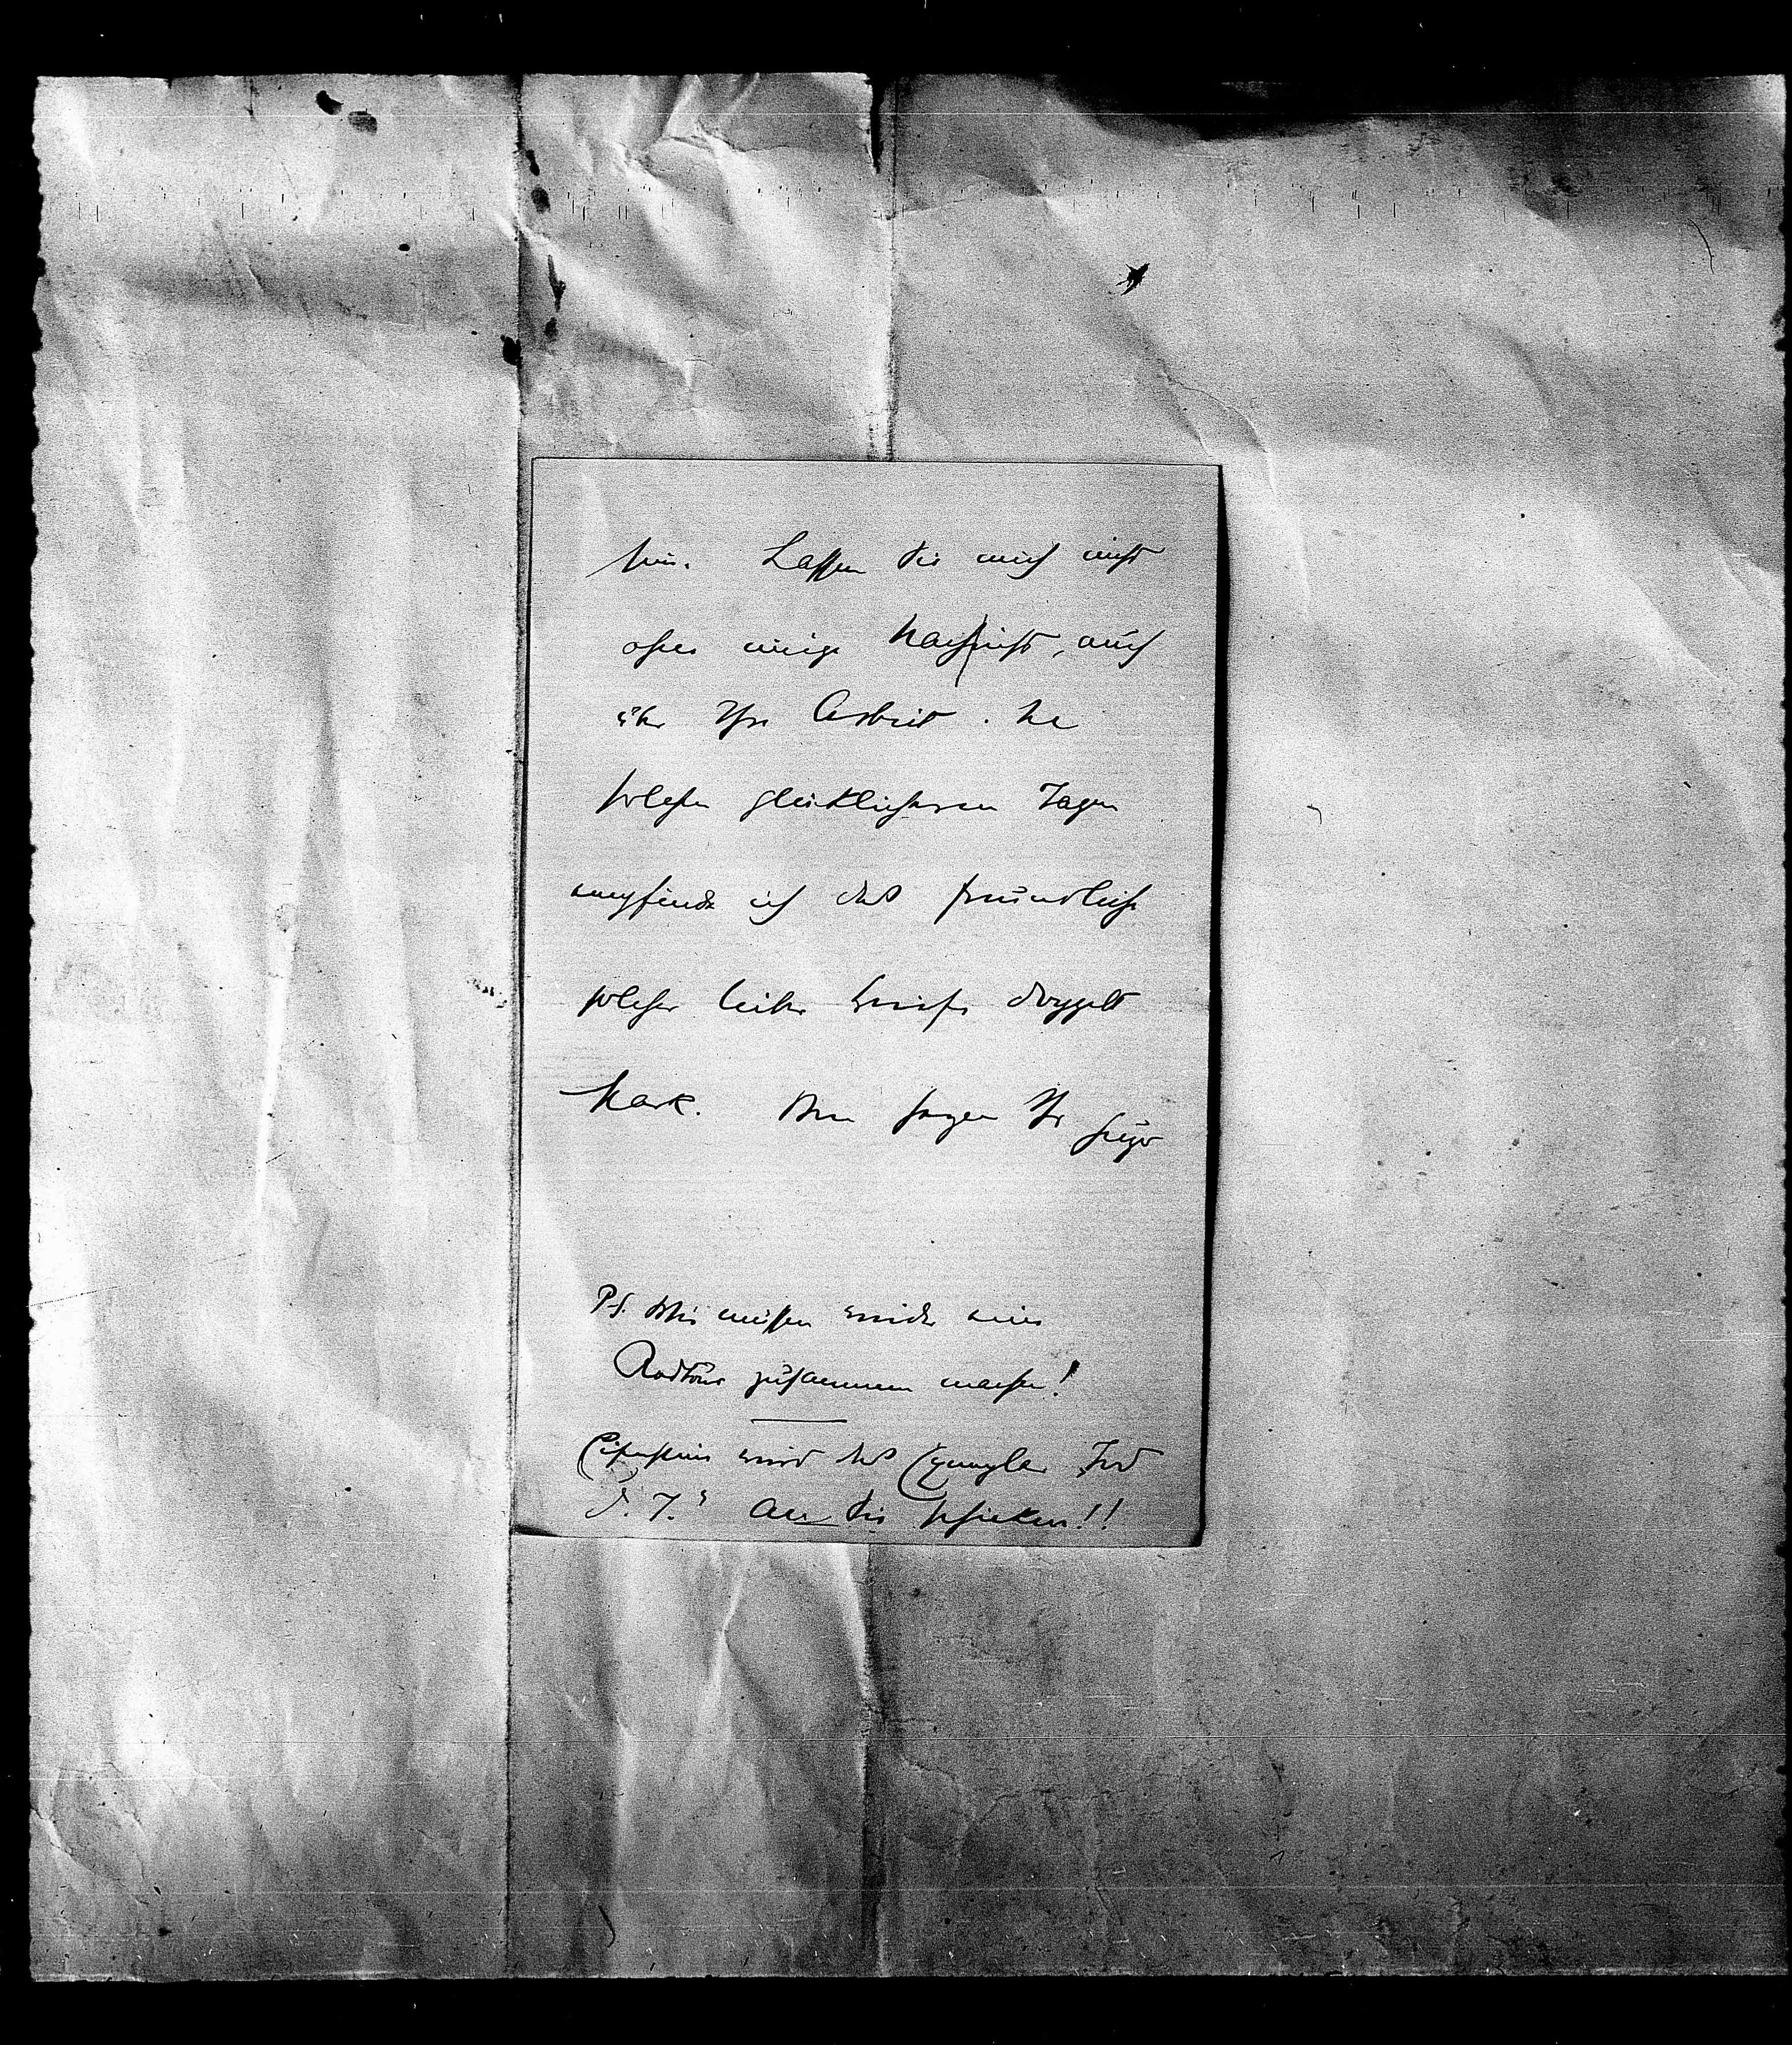 sein. Lassen Sie mich nicht
ohne einige Nachricht, auch
über Ihre Arbeit. An
solchen glücklicheren Tagen
empfinde ich das freundliche
solcher lieber Briefe doppelt
stark. Von Herzen Ihr Hugo
PS. Wir müssen wieder eine
Radtour zusammen machen!
wird das Exemplar „Tod
d. T.“ an Sie schicken!!